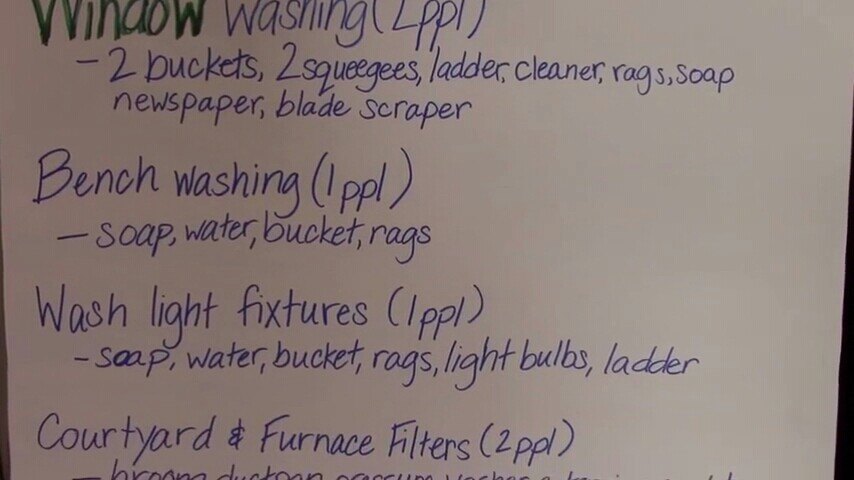 Window Washing (2ppl)
- 2 buckets, 2 squeegees, ladder, cleaner, rags, soap
newspaper, blade scraper
Bench washing (1ppl)
- soap, water, bucket, rags
Wash light fixtures (1ppl)
- soap, water, bucket, rags, light bulbs, ladder
Courtyard & Furnace Filters (2ppl)